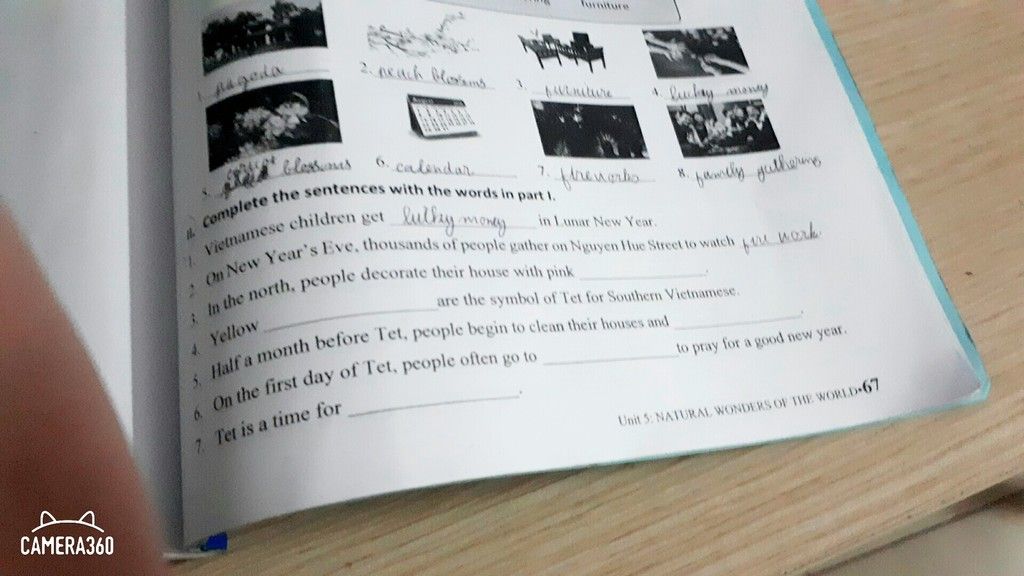 furniture
1. pagoda
2. peach blossoms
3. furniture
4. lucky money
5. blossoms
6. calendar
7. fireworks
8. family gathering
II. Complete the sentences with the words in part I.
1. Vietnamese children get lucky money in Lunar New Year.
2. On New Year's Eve, thousands of people gather on Nguyen Hue Street to watch fire work
3. In the north, people decorate their house with pink ____.
4. Yellow ____ are the symbol of Tet for Southern Vietnamese.
5. Half a month before Tet, people begin to clean their houses and ____.
6. On the first day of Tet, people often go to ____ to pray for a good new year.
7. Tet is a time for ____.
Unit 5: NATURAL WONDERS OF THE WORLD•67
CAMERA360